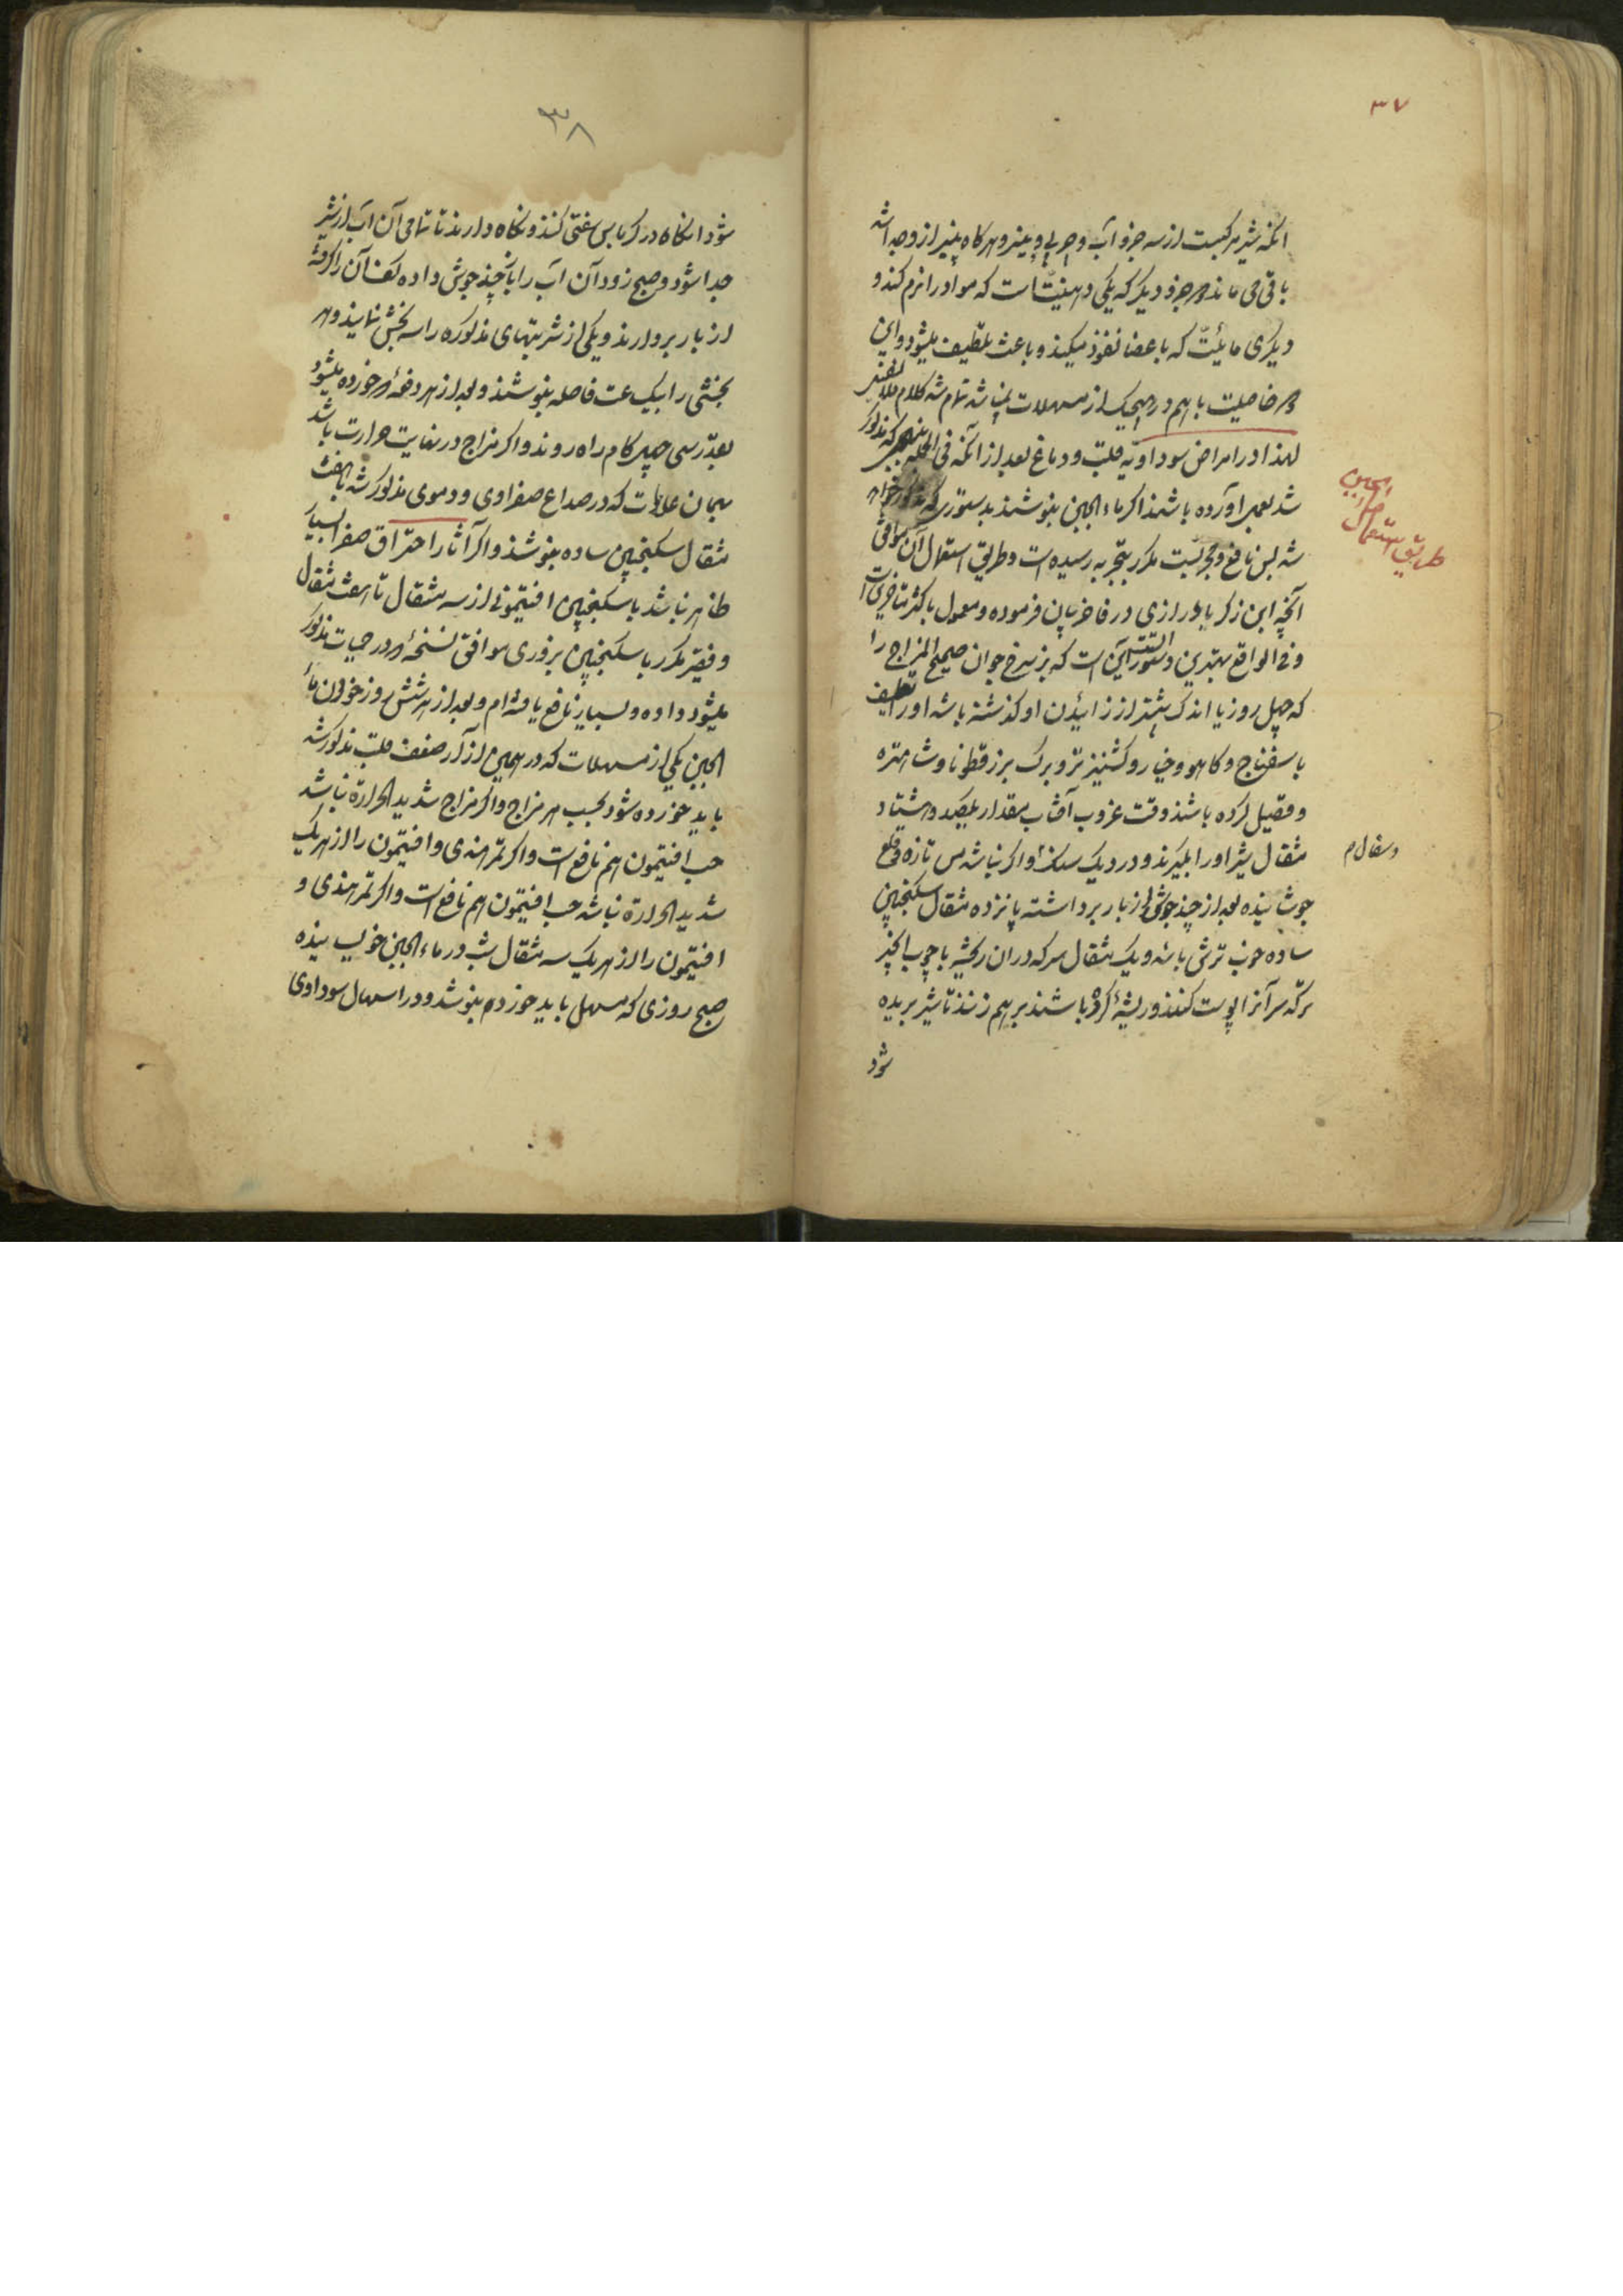 ۳۷
آنکه شیر مرکبست از سه جزو آب و چربی و پنیر و هرکاه پنیر ازو جدا شد
باقی می ماند دو جزو دیکر که یکی دهنیّت است که مواد را نرم کند و
دیکری مائیّت که باعضا نفوذ میکند و باعث تلطیف میشود و این
دو خاصیت باهم در هیچیک از مسهلات نمیباشد تمام شد کلام
لهذا در امراض سوداویه قلب و دماغ بعد از آنکه فی الجمله که مذکور
شد بعمل آورده باشند اکر ماء الجبن بنوشند بدستوری که
شد بس نافع و مجربست مکرر بتجربه رسیده است و طریق استعمال آن موافق
طریق استعمال ماء الجبن
آنچه ابن زکریا رازی در فاخر بیان فرموده و معمول باکثر متاخرین است
و فی الواقع بهترین دستور است این است که بز سرخ جوان صحیح المزاج را
که چهل روز یا اندک بیشتر از زائیدن او کذشته باشد او را تعلیف
باسفناج و کاهو و خیار و کشنیز تر و برک بزرقطونا و شاهتره
و قصیل کرده باشند وقت غروب آفتاب بمقدار یکصد و هشتاد
مثقال شیر او را بکیرند و در دیک سنک و اکر نباشد مس تازه قلع
و سفال م
جوشانیده بعد از چند جوش از بار برداشته پانزده مثقال سکنجبین
ساده خوب ترشی باشد و یک مثقال سرکه در آن ریخته با چوب انجیر
تر که سر آنرا پوست کنند و ریشه کرده باشند بر هم زنند تا شیر بریده
شود
۳۸
شود آنکاه در کرباس سفتی کنند و نکاه دارند تا تمامی آن آب از شیر
جدا شود و صبح زود آن آب را باز چند جوش داده کف آن را کرفته
از بار بردارند و یکی از شربتهای مذکوره را سه بخش نمایند و هر
بخشی را بیک ساعت فاصله بنوشند و بعد از هر دفعه که خورده میشود
بقدر سی چهل کام راه روند و اکر مزاج در نهایت حرارت باشد
بهمان علامات که در صداع صفراوی و دموی مذکور شد با هفت
مثقال سکنجبین ساده بنوشند و اکر آثار احتراق صفرا بسیار
ظاهر نباشد با سکنجبین افتیمونی از سه مثقال تا هفت مثقال
و فقیر مکرر با سکنجبین بزوری موافق نسخه که در حمیات مذکور
میشود داده و بسیار نافع یافته ام و بعد از هر شش روز خوردن ماء
الجبن یکی از مسهلات که در همین از آن ضعف قلب مذکور شد
باید خورده شود بحسب هر مزاج و اکر مزاج شدید الحرارة نباشد
حب افتیمون هم نافع است و اکر تمر هندی و افتیمون را از هر یک
شدید الحرارة نباشد حب افتیمون هم نافع است و اکر تمر هندی و
افتیمون را از هر یک سه مثقال شب در ماء الجبن خویسانیده
صبح روزی که مسهل باید خورد هم بنوشد و در اسهال سوداوی